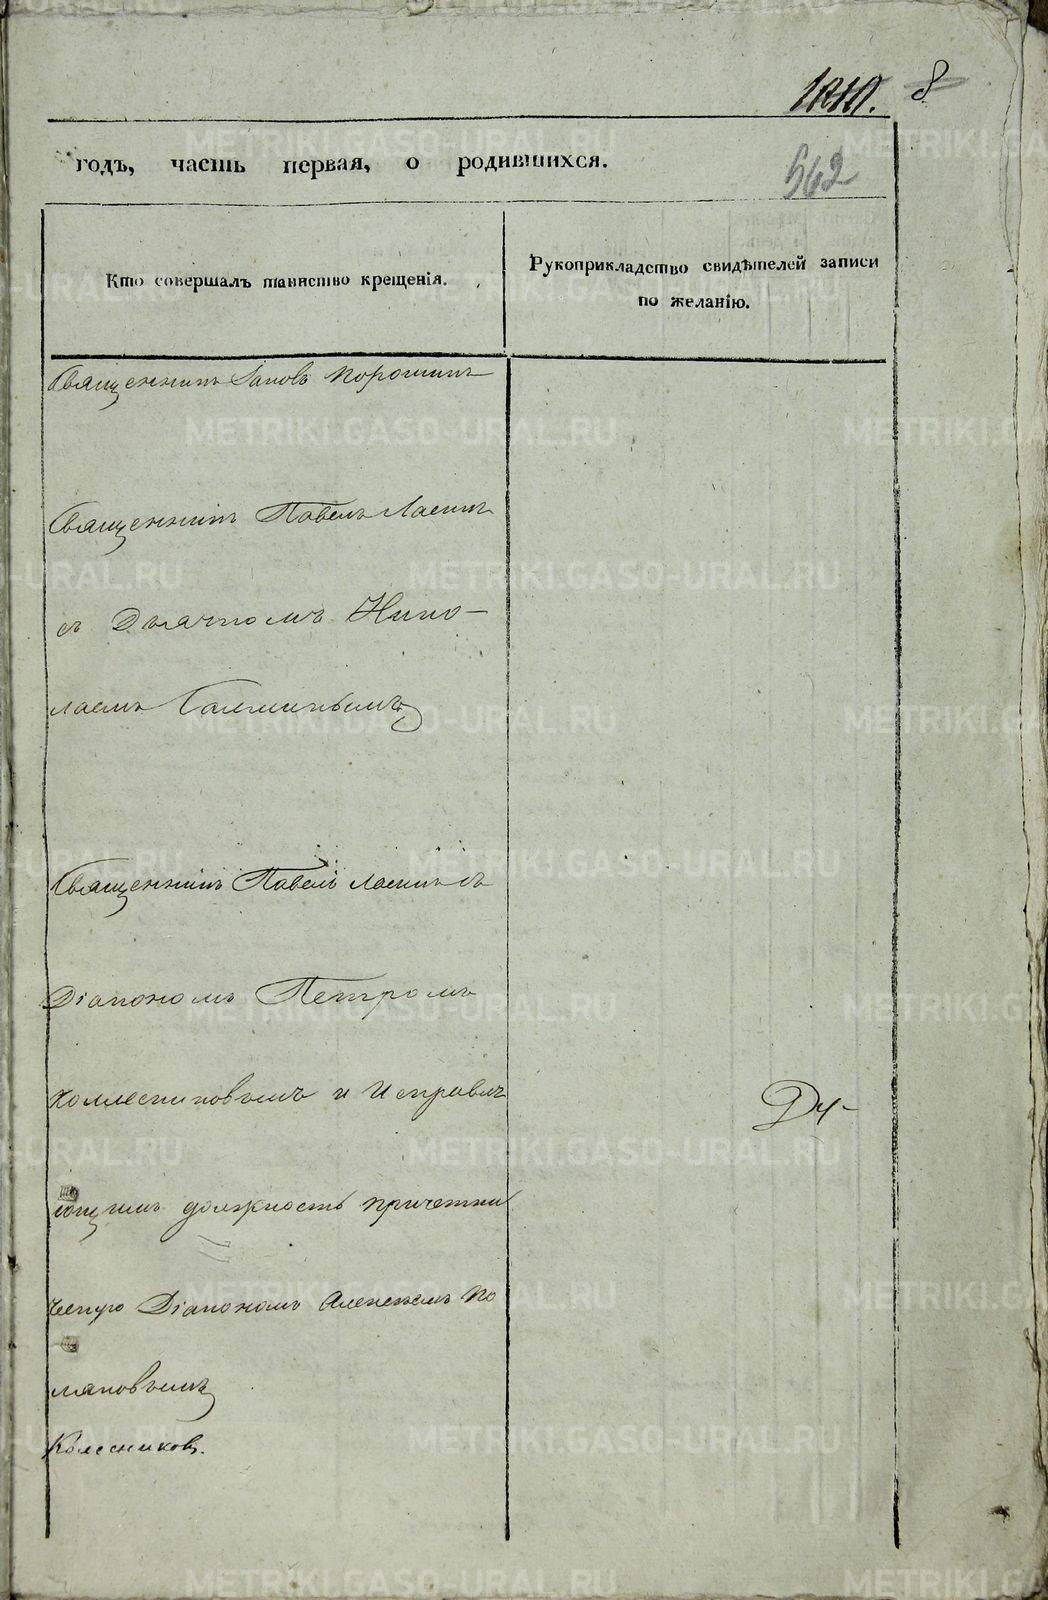 8
годъ, часть первая, о родившихся.
562
Кто совершалъ таинство крещенія.
Рукоприкладство свидѣтелей записи
по желанію.
Священникъ Іаковъ Порошинъ
Священникъ Павелъ Ласинъ
съ Дьячкомъ Нико-
лаемъ
Священникъ Павелъ Ласинъ съ
Діакономъ Петромъ
Колесниковымъ и Исправля
ющимъ должность причетни
ческую Діакономъ Алексѣемъ По
ляковымъ
Колесниковъ.
METRIKI.GASO-URAL.RU